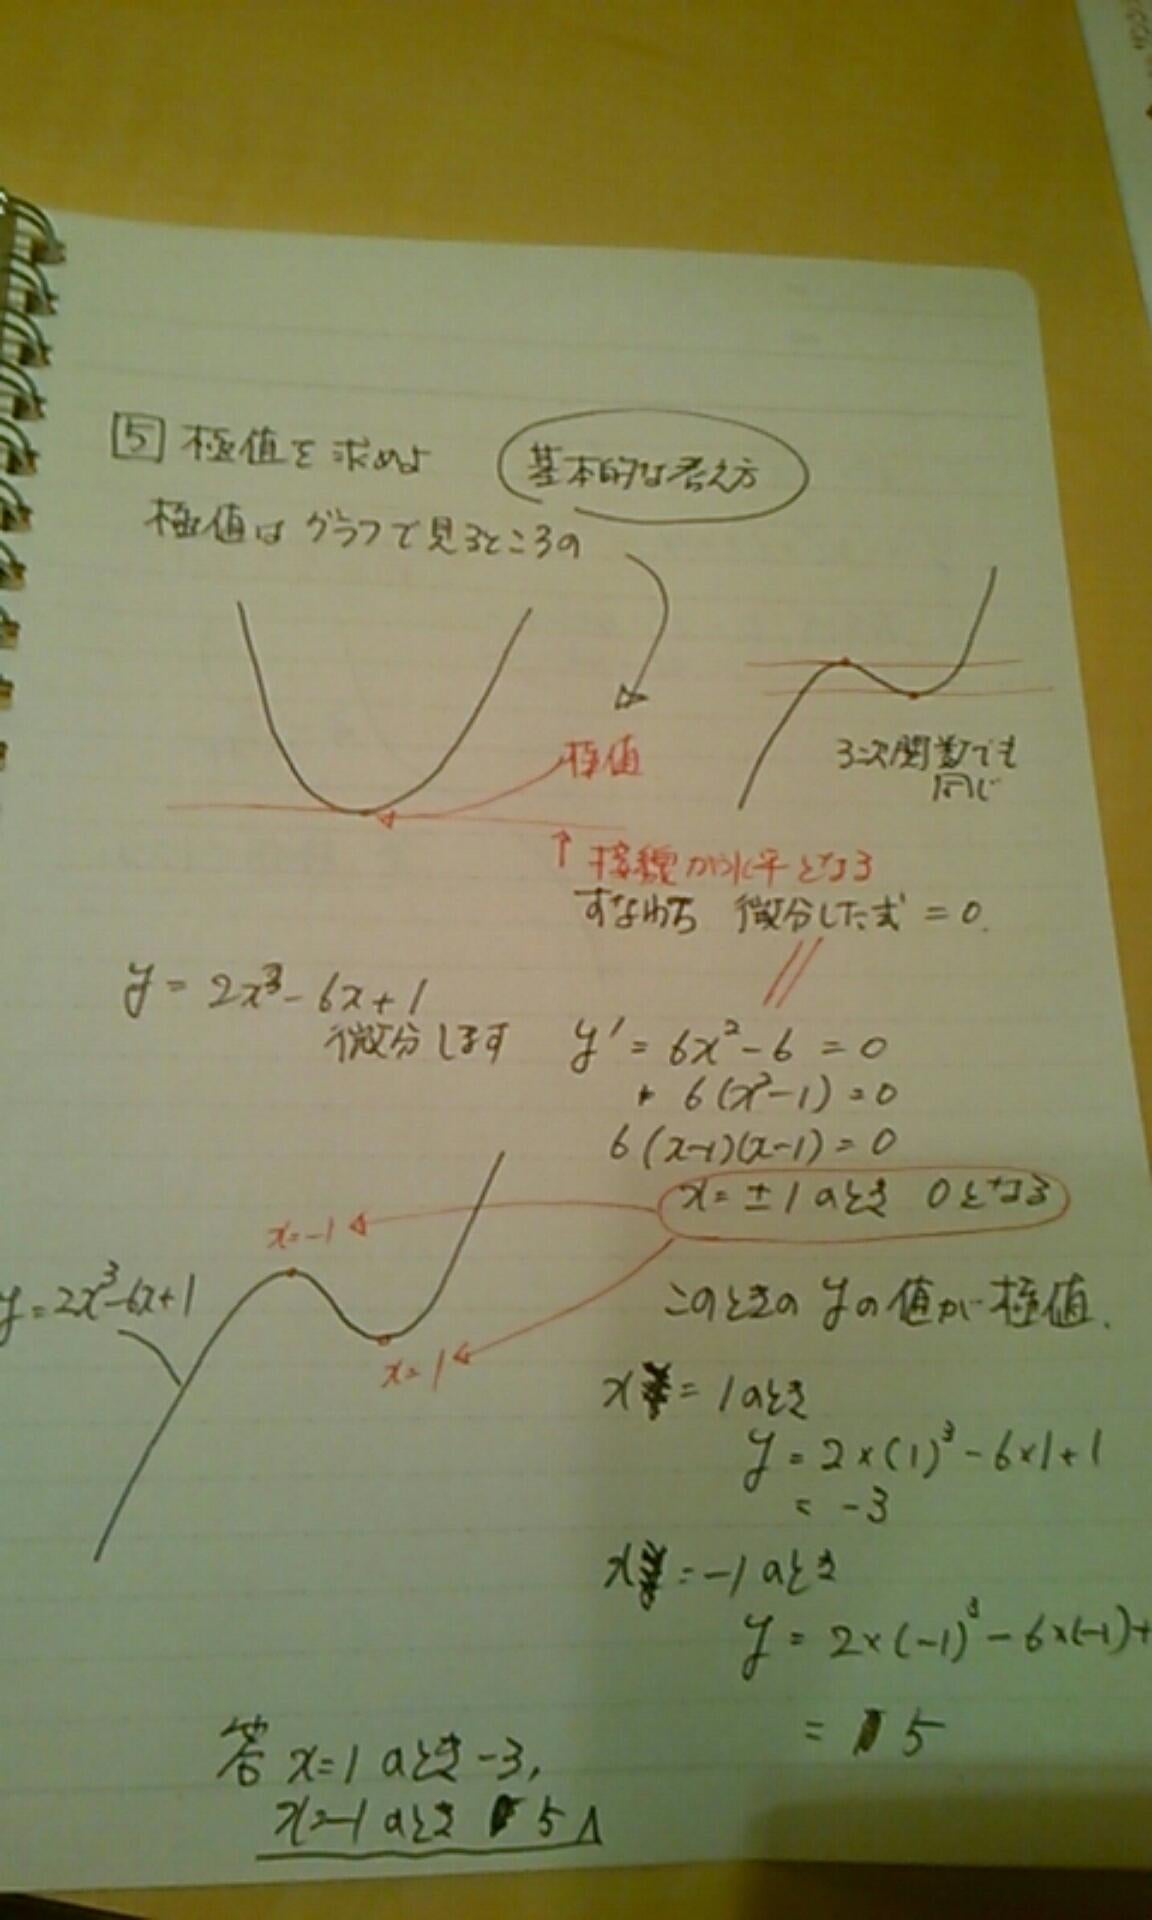 5 極値を求めよ
基本的な考え方
極値はグラフで見るところの
極値
3次関数でも
同じ
↑ 接線が水平となる
すなわち 微分した式 = 0.
y = 2x³ - 6x + 1
微分します
y' = 6x² - 6 = 0
6(x²-1) = 0
6(x-1)(x-1) = 0
x = ±1のとき 0となる
x=-1
y=2x³-6x+1
x=1
このときの yの値が極値.
x = 1のとき
y = 2×(1)³ - 6×1+1
= -3
x = -1のとき
y = 2×(-1)³ - 6×(-1)+
= 5
答 x=1のとき -3,
x=-1のとき 5